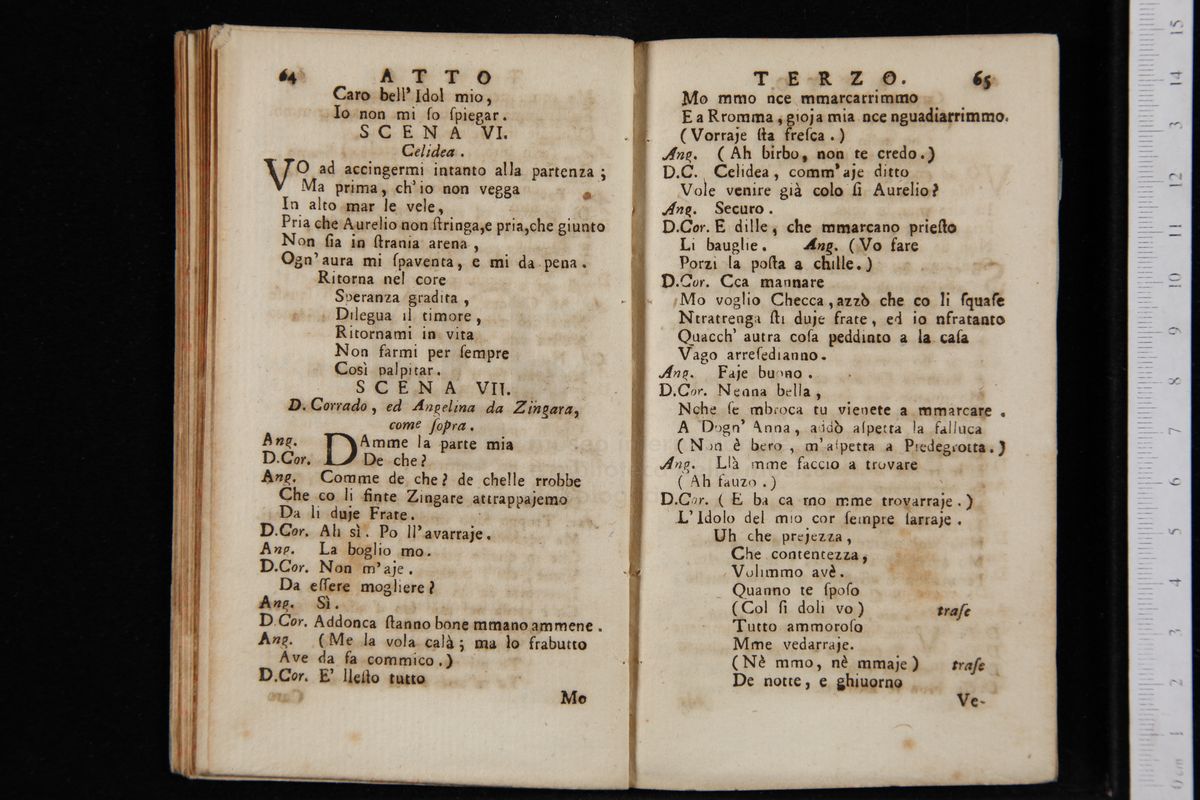 64 ATTO
Caro bell' Idol mio,
Io non mi fo ſpiegar.
SCENA VI.
Celidea.
VO ad accingermi intanto alla partenza;
Ma prima, ch'io non vegga
In alto mar le vele,
Pria che Aurelio non ſtringa,e pria,che giunto
Non ſia in ſtrania arena,
Ogn'aura mi ſpaventa, e mi da pena.
Ritorna nel core
Speranza gradita,
Dilegua il timore,
Ritornami in vita
Non farmi per ſempre
Così palpitar.
SCENA VII.
D. Corrado, ed Angelina da Zingara,
come ſopra.
Ang. DAmme la parte mia
D.Cor. De che?
Ang. Comme de che? de chelle rrobbe
Che co li finte Zingare attrappajemo
Da li duje Frate.
D.Cor. Ah sì. Po ll'avarraje.
Ang. La boglio mo.
D.Cor. Non m'aje.
Da eſſere mogliere?
Ang. Sì.
D.Cor. Addonca ſtanno bone mmano ammene.
Ang. (Me la vola calà; ma lo frabutto
Ave da fa commico.)
D.Cor. E' lleſto tutto
Mo
TERZO. 65
Mo mmo nce mmarcarrimmo
E a Rromma, gioja mia nce nguadiarrimmo.
(Vorraje ſta freſca.)
Ang. (Ah birbo, non te credo.)
D.C. Celidea, comm'aje ditto
Vole venire già colo ſi Aurelio?
Ang. Securo.
D.Cor. E dille, che mmarcano prieſto
Li bauglie. Ang. (Vo fare
Porzì la poſta a chille.)
D.Cor. Cca mannare
Mo voglio Checca, azzò che co li ſquaſe
Ntratrenga ſti duje frate, ed io nfratanto
Quacch' autra coſa peddinto a la caſa
Vago arreſedianno.
Ang. Faje buono.
D.Cor. Nenna bella,
Nche ſe mbroca tu vienete a mmarcare,
A Dogn' Anna, addò aſpetta la falluca
(Non è bero, m'aſpetta a Piedegrotta.)
Ang. Llà mme faccio a trovare
(Ah fauzo.)
D.Cor. (E ba ca mo mme trovarraje.)
L'Idolo del mio cor ſempre ſarraje.
Uh che prejezza,
Che contentezza,
Volimmo avè.
Quanno te ſpoſo
(Col ſi doli vo) traſe
Tutto ammoroſo
Mme vedarraje.
(Nè mmo, nè mmaje) traſe
De notte, e ghiuorno
Ve-